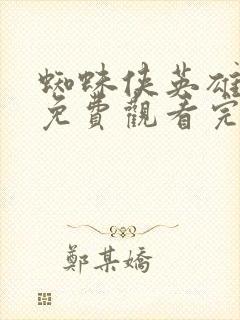 蜘蛛侠英雄
免費觀看完
鄭某嬌